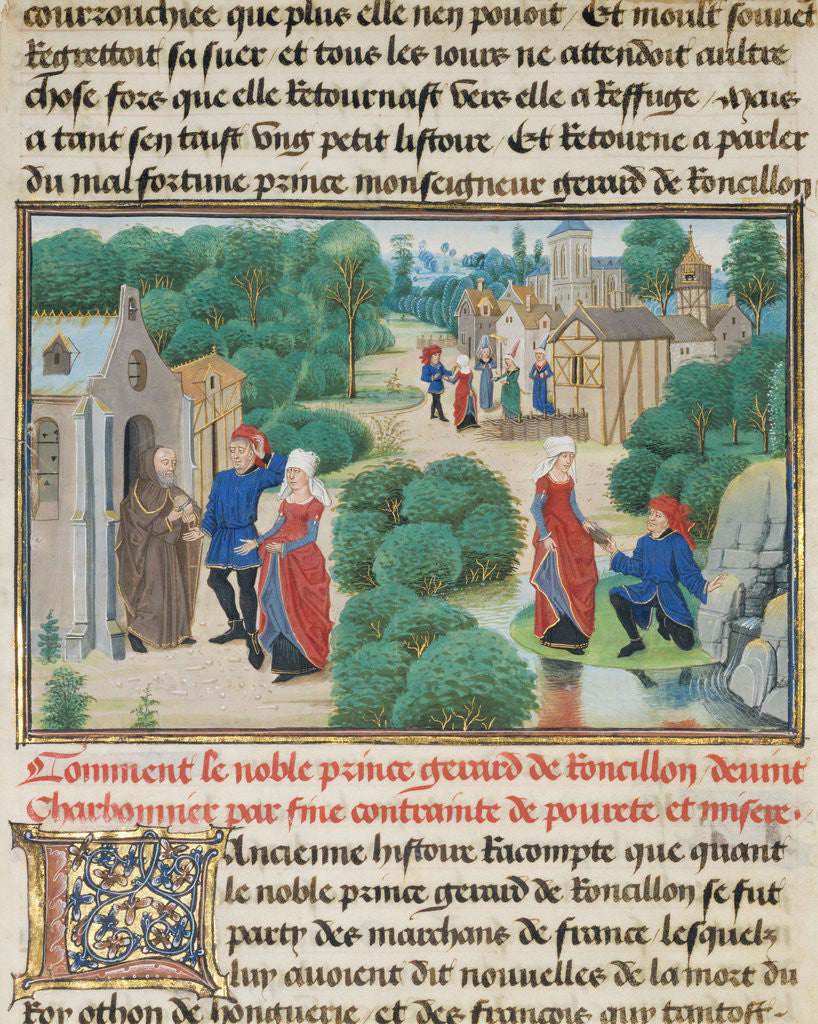 courzouchiee que plus elle nen pouoit / Et moult souuet
Regrettoit sa suer / et tous les iours ne attendoit aultre
chose fors que elle Retournast vers elle a Reffuge / Mais
a tant sen taist vng petit listoire / Et Retourne a parler
du mal fortune prince monseigneur gerard de Roncillon
Comment le noble prince gerard de Roncillon / deuint
Charbonnier par fine contrainte de pourete et misere.
LAncienne histoire Racompte que quant
le noble prince gerard de Roncillon se fut
party des marchans de france / lesquelz
luy auoient dit nouuelles de la mort du
Roy othon de honguerie / et des francois quy tantost-